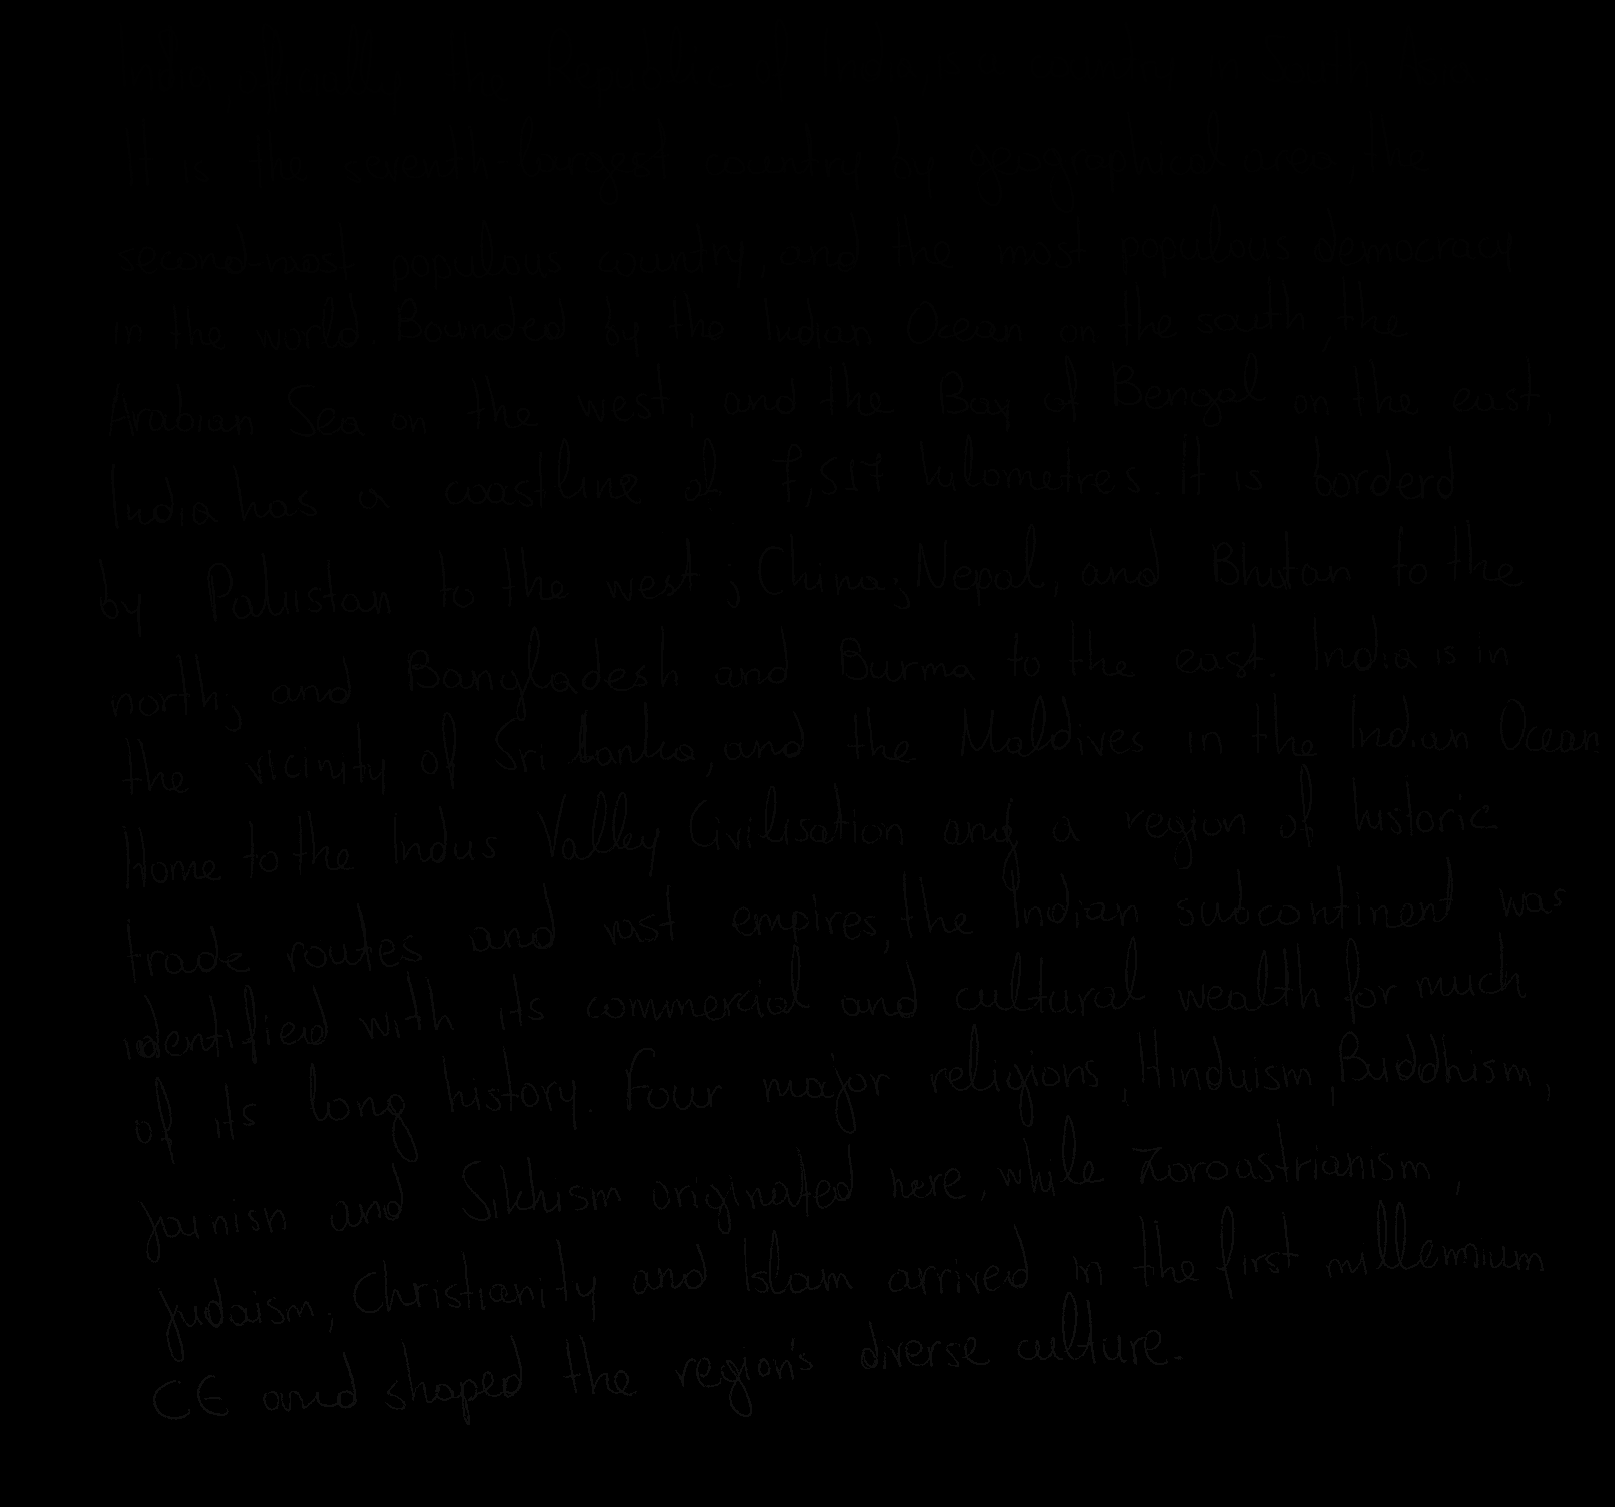 It is the seventh-largest country by geographical area, the
second-most populous country, and the most populous democracy
in the world. Bounded by the Indian Ocean on the south, the
Arabian Sea on the west, and the Bay of Bengal on the east,
India has a coastline of 7,517 kilometres. It is borderd
by Pakistan to the west; China; Nepal, and Bhutan to the
north; and Bangladesh and Burma to the east. India is in
the vicinity of Sri Lanka, and the Maldives in the Indian Ocean
Home to the Indus Valley Civilisation and a region of historic
trade routes and vast empires, the Indian subcontinent was
identified with its commercial and cultural wealth for much
of its long history. Four major religions, Hinduism, Buddhism,
Jainisn and Sikhism originated here, while Zoroastrianism,
Judaism, Christianity and Islam arrived in the first millennium
CE and shaped the region's diverse culture.